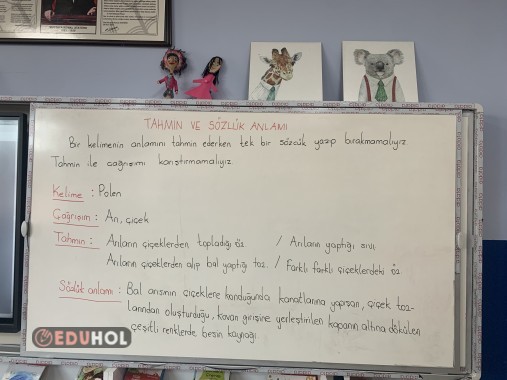 TAHMİN VE SÖZLÜK ANLAMI
Bir kelimenin anlamını tahmin ederken tek bir sözcük yazıp bırakmamalıyız.
Tahmin ile çağrışımı karıştırmamalıyız.
Kelime : Polen
Çağrışım : Arı, çiçek
Tahmin : Arıların çiçeklerden topladığı öz / Arıların yaptığı sıvı
Arıların çiçeklerden alıp bal yaptığı toz. / Farklı farklı çiçeklerdeki öz
Sözlük anlamı : Bal arısının çiçeklere konduğunda kanatlarına yapışan, çiçek toz-
larından oluşturduğu, kovan girişine yerleştirilen kapanın altına dökülen
çeşitli renklerde besin kaynağı
EDUHOL